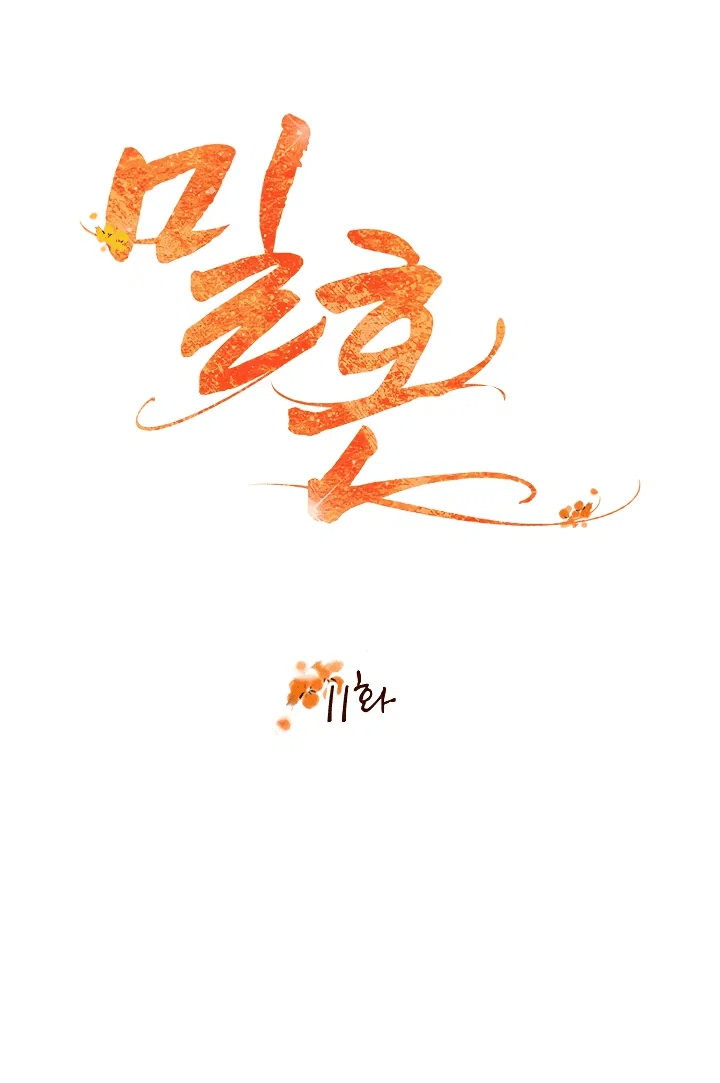 밀혼
11화